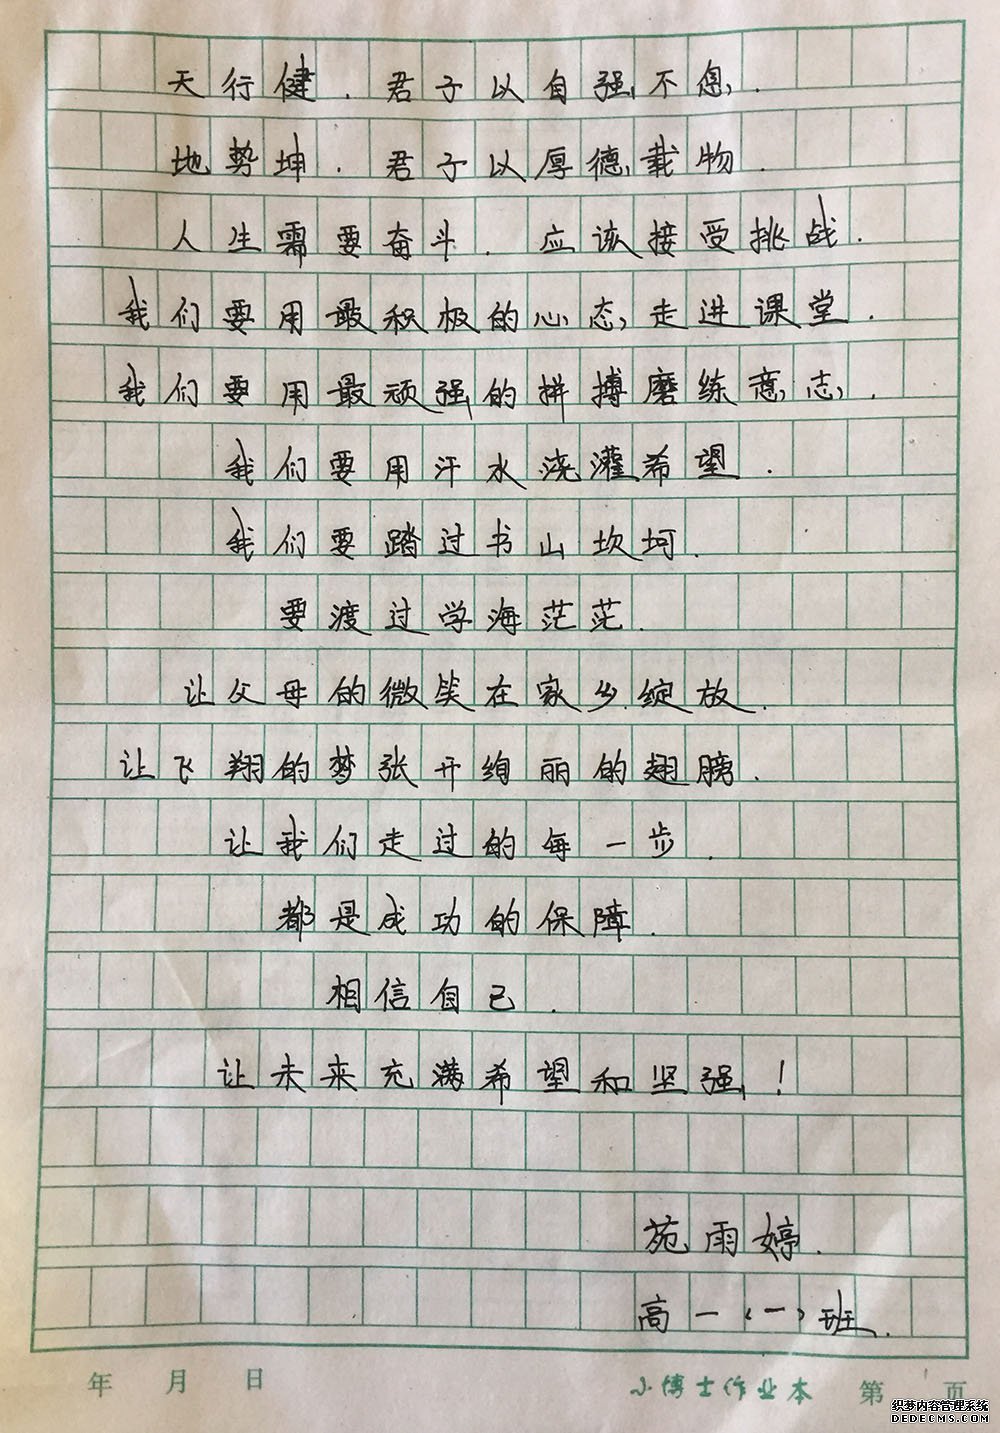 天行健.君子以自强不息.
地势坤.君子以厚德载物.
人生需要奋斗.应该接受挑战.
我们要用最积极的心态走进课堂.
我们要用最顽强的拼搏磨练意志.
我们要用汗水浇灌希望.
我们要踏过书山坎坷.
要渡过学海茫茫.
让父母的微笑在家乡绽放.
让飞翔的梦张开绚丽的翅膀.
让我们走过的每一步.
都是成功的保障.
相信自己.
让未来充满希望和坚强!
苑雨婷.
高一<一>班.
年 月 日 小博士作业本 第 页
织梦内容管理系统
DEDECMS.COM